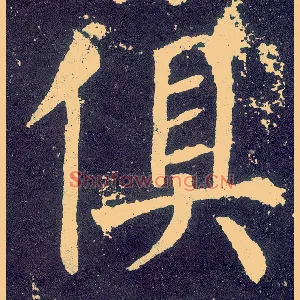 俱
Shufawang.CN